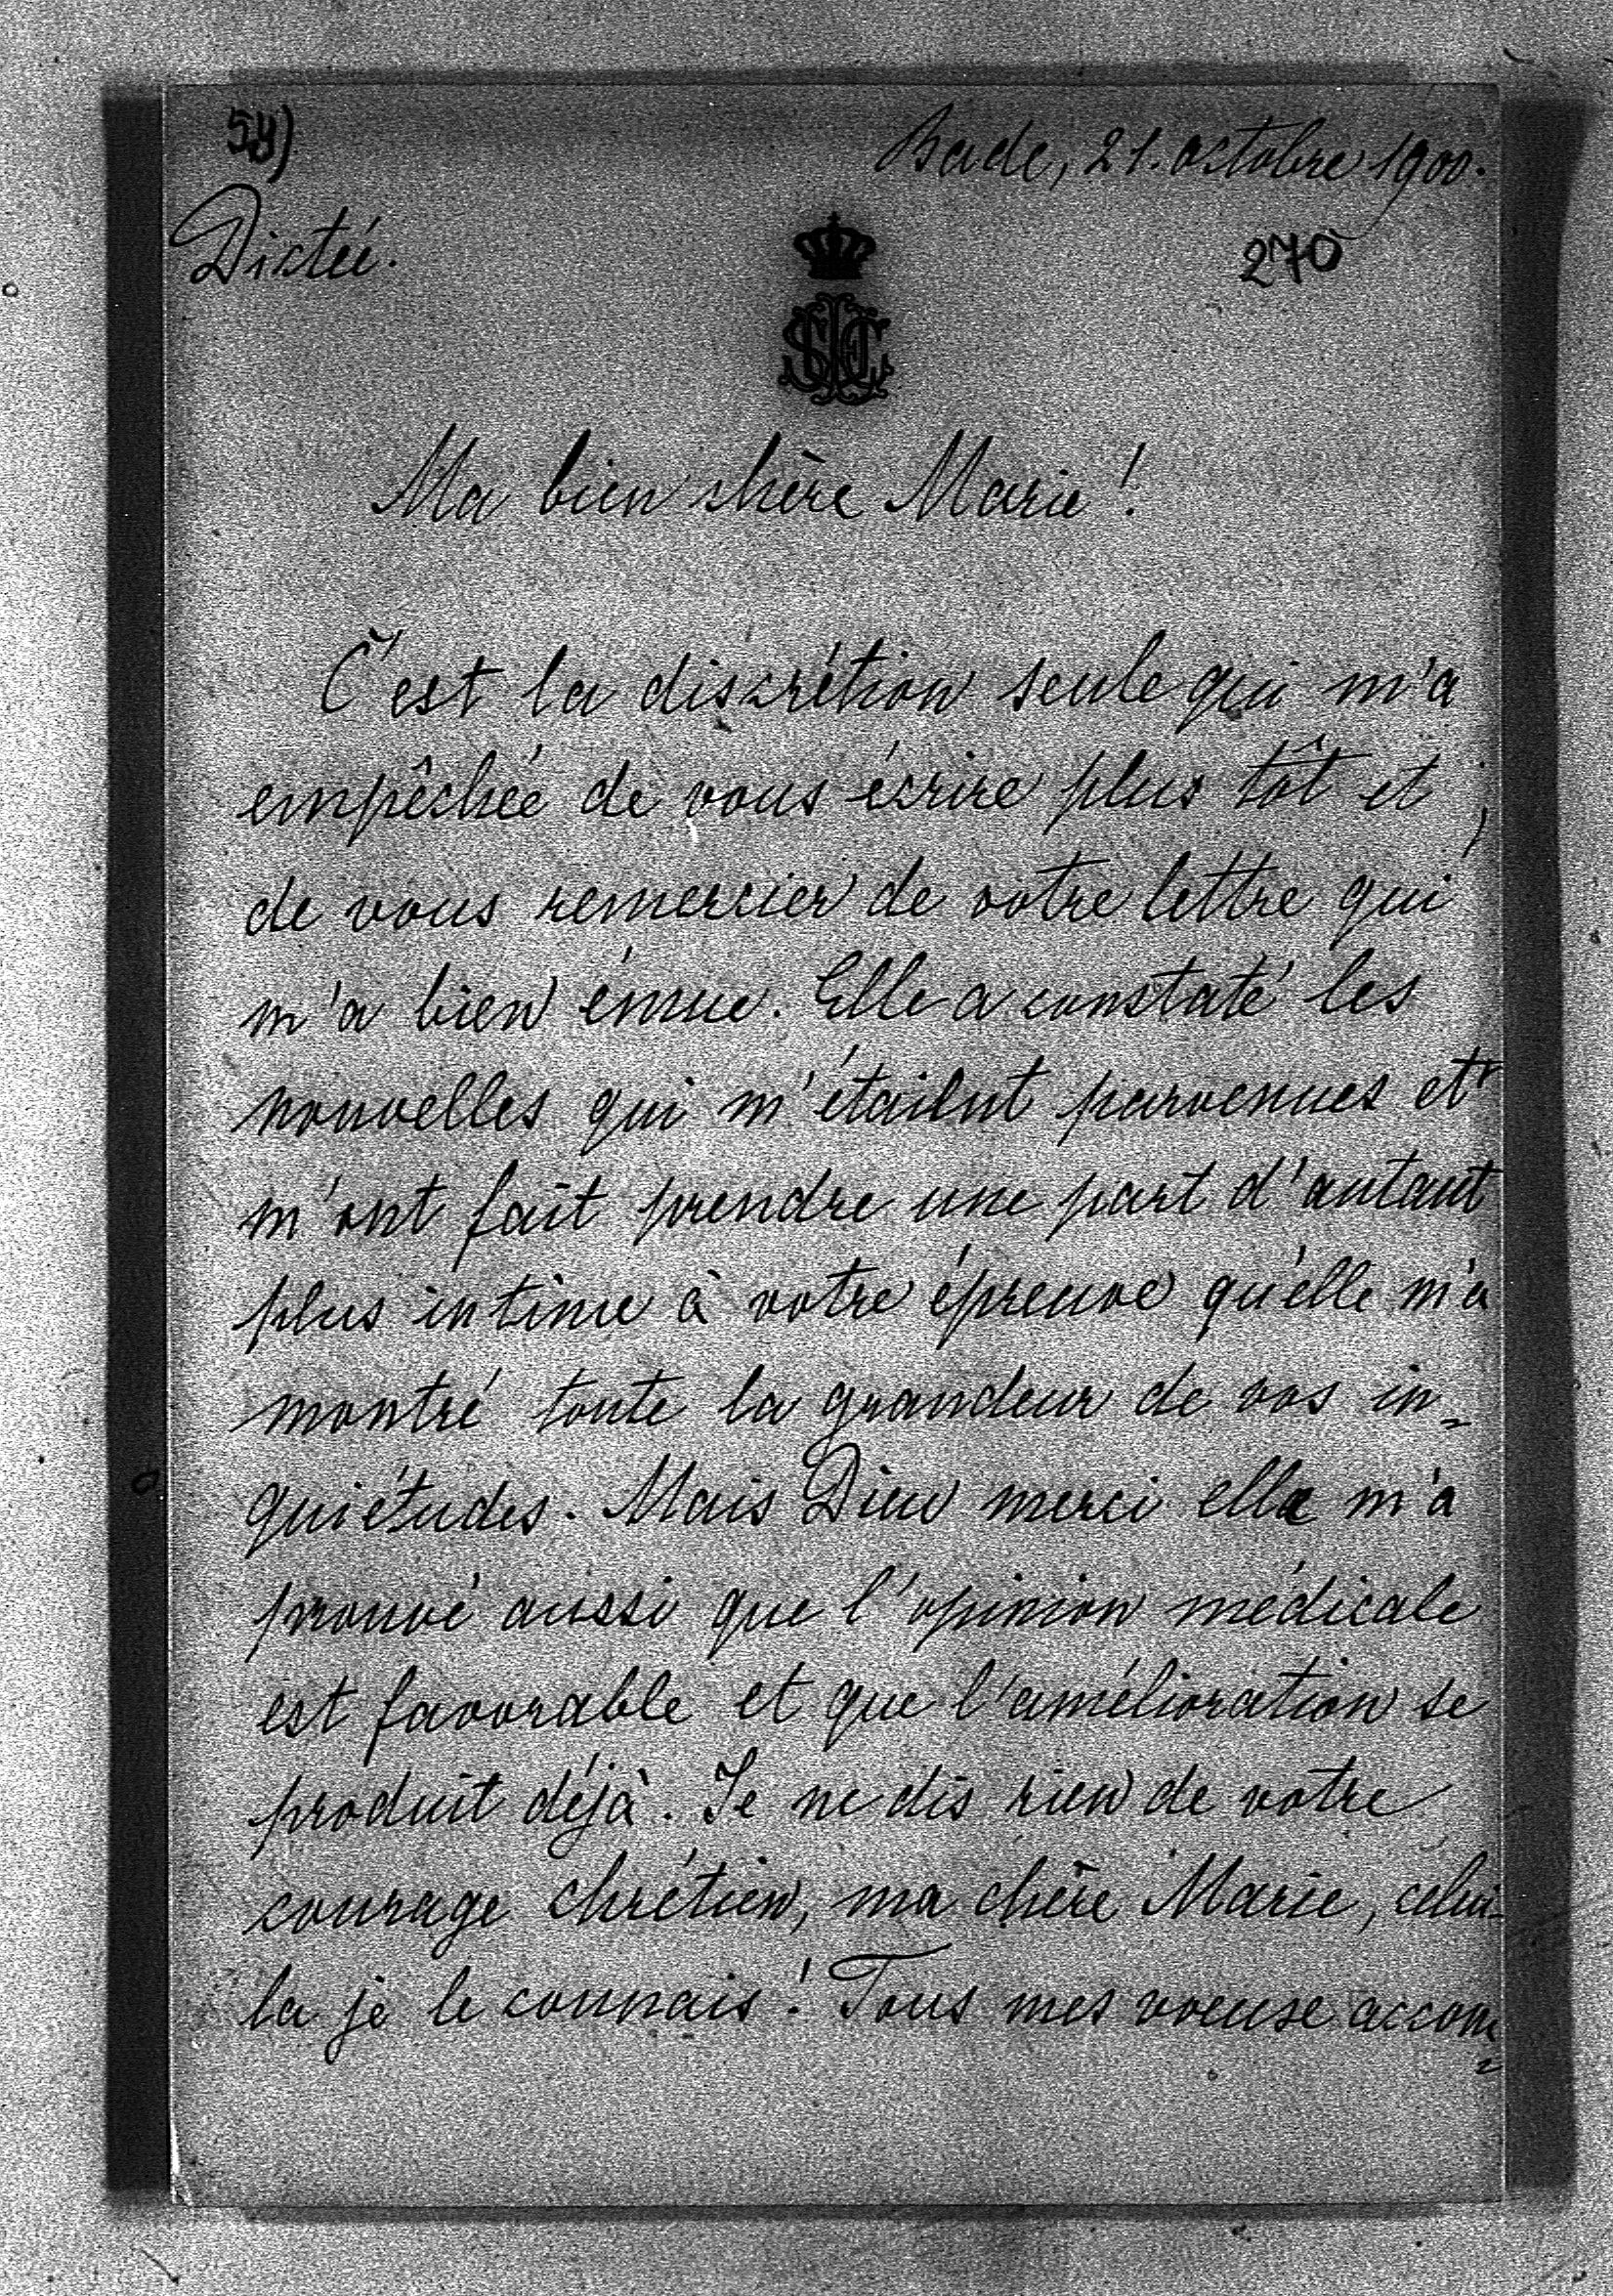 Bade, 21. octobre 1900.
Dictée.
270
Ma bien chère Marie!
C'est la discrétion seule qui m'a
empêchée de vous écrire plus tôt et
de vous remercier de votre lettre qui
m'a bien émue. Elle a constaté les
nouvelles qui m'étaient parvenues et
m'ont fait prendre une part d'autant
plus intime à votre épreuve qu'elle m'a
montré toute la grandeur de vos in=
quiétudes. Mais Dieu merci elle m'a
prouvé aussi que l'opinion médicale
est favorable et que l'amélioration se
produit déjà. Je ne dis rien de votre
courage chrétien, ma chère Marie, celui-
la je le connais! Tous mes voeuse accom=